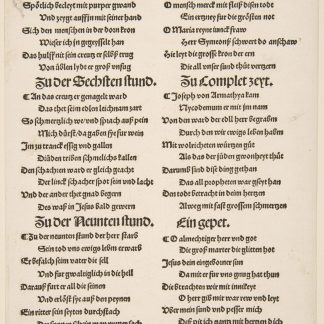 Spötlich becleyt mit purper gwand
Und zeygt auffin mit seiner hand
Sich den menschen in der dorn kron
Wie ser ich jn gegeysselt han
Das hulff nit sein creutz er selbs trug
Von üblen lydt er groß unfug
Zu der Sechsten stund.
An das creutz er genagelt ward
Das thet seim edlen leichnam zart
So schmertzlich we und sprach auß pein
Mich dürst, da gaben sye fur wein
Im zu tranck essig und gallen
Die schmelichs kallen
Den schachern ward er gleich gracht
Der linck schacher spot sein und lacht
Und der ander thet gnad begern
Des waß in Jesus bald gewern
Zu der Neunten stund.
Zu der neunten stund der herr starb
Sein tod uns ewigs leben erwarb
Er befalch seim vater die sell
Und fur gwaltiglich in die hell
Darauß furt er all die seinen
Und erlöst sye auß den peynen
Ein ritter sein seyten durchstach
O mensch merck mit fleiß disen todt
Ein ertzney fur die grösten not
O Maria reyne junckfraw
Herr Symeons schwert do anschaw
Hie leyt die groß kron der ern
Die all unser sünd thut verzern
Zu Complet zeyt.
Joseph von Armathya kam
Nycodemum er mit jm nam
Von den ward der edl herr begraben
Durch den wir ewigs leben haben
Mit wolrichetten würtzen gut
Als das der jüden gwonheyt thut
Darumb sind dise ding gethan
Das all propheten war gseyt han
Den todt betracht in deim hertzen
Alweg mit fast grossem schmertzen
Ein gepet.
O almechtiger herr und got
Die groß marter die gliten hot
Jesus dein eingeborner sun
Da mit er fur uns gnug hat thun
Die btrachten wir mit innikeyt
O herr gib mir war rew und leyt
Uber mein sund und besser mich